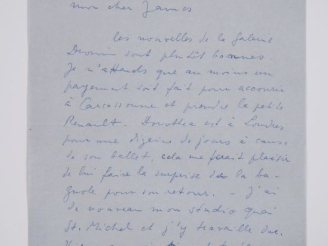 mon cher James
les nouvelles de la galerie
sont plutôt bonnes
Je n'attends que au moins un
payement soit fait pour accourir
à Carcassonne et prendre la petite
Renault. Dorothea est à Londres
pour une dizaine de jours à cause
de son ballet, cela me ferait plaisir
de lui faire la surprise de la ba-
gnole pour son retour. - J'ai
de nouveau mon studio quai
St. Michel et j'y travaille dur.